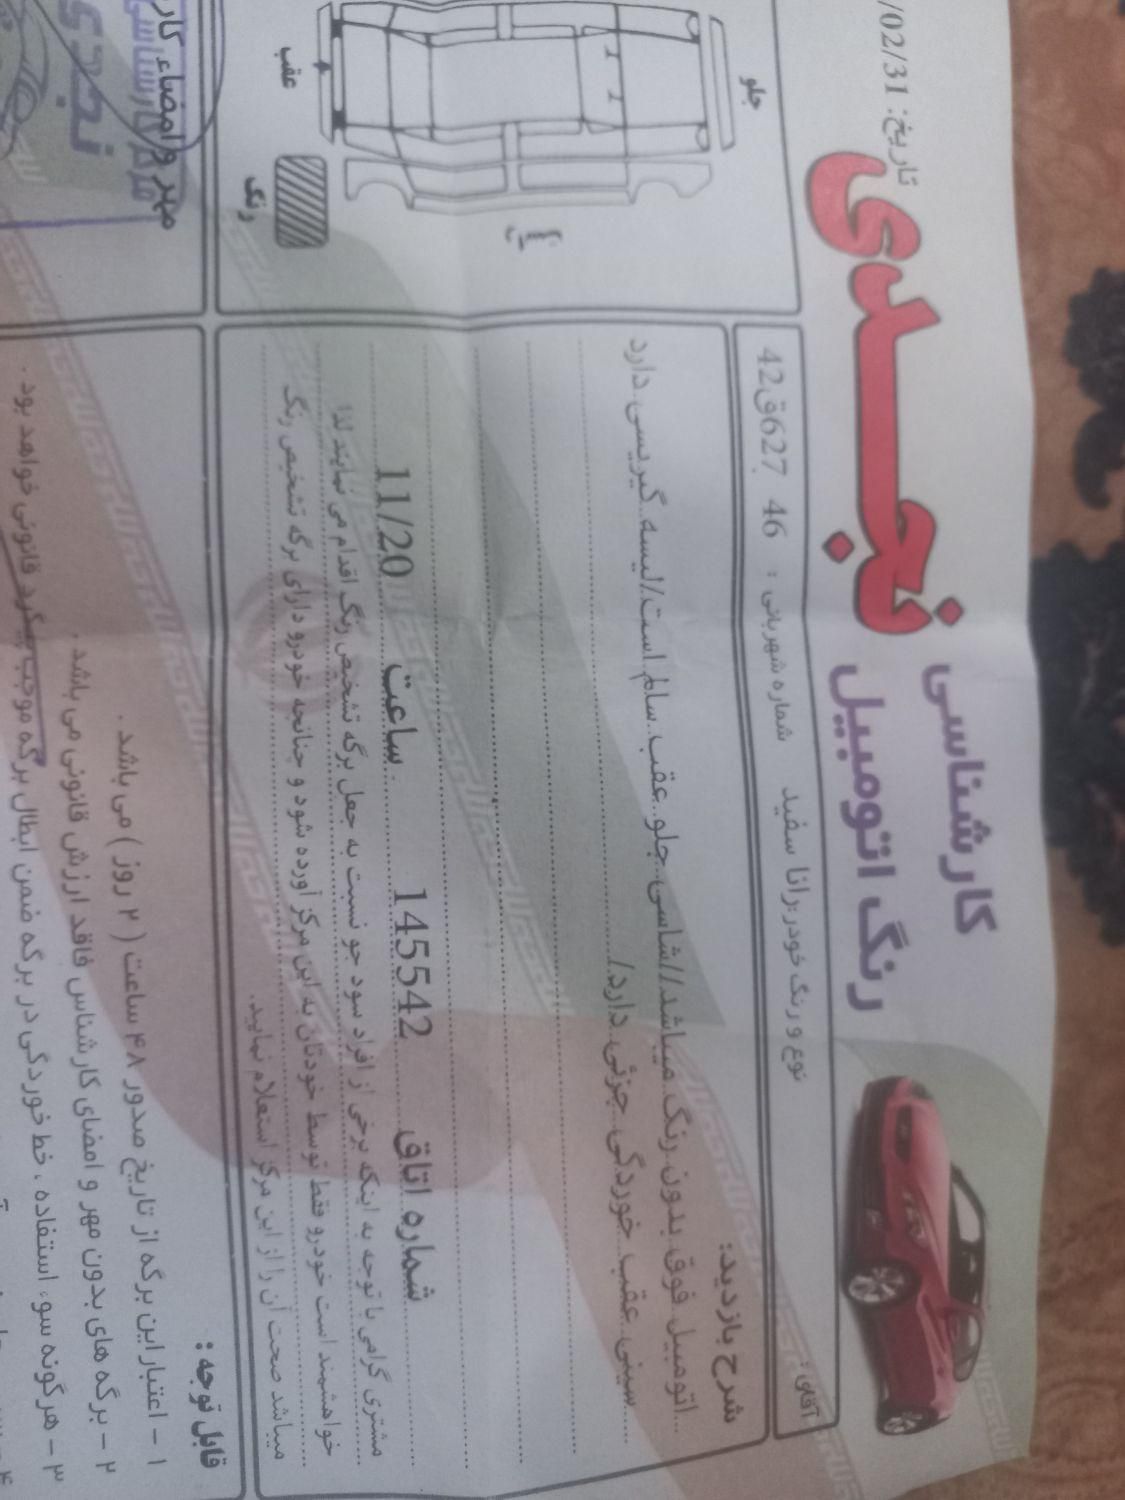 کارشناسی
رنگ اتومبیل
نجدی
تاریخ: 02/31/
آقای:
نوع و رنگ خودر:رانا سفید شماره شهربانی : 46 627ق42
شرح بازدید:
اتومبیل فوق بدون رنگ میباشد//شاسی جلو عقب سالم است/لیسه گیریسی دارد
سینی عقب خوردگی جزئی دارد/
شماره اتاق 145542 ساعت 11/20
مشتری گرامی با توجه به اینکه برخی از افراد سود جو نسبت به جعل برگه تشخیص رنگ اقدام می نمایند لذا
خواهشمند است خودرو فقط توسط خودتان به این مرکز آورده شود و چنانچه خودرو دارای برگه تشخیص رنگ
میباشد صحت آن را از این مرکز استعلام نمایید.
جلو
عقب
رنگ
قابل توجه :
۱ – اعتبار این برگه از تاریخ صدور ۴۸ ساعت ( ۲ روز ) می باشد .
۲ – برگه های بدون مهر و امضای کارشناس فاقد ارزش قانونی می باشد .
۳ – هرگونه سوء استفاده ، خط خوردگی در برگه ضمن ابطال برگه موجب پیگرد قانونی خواهد بود .
مهر و امضاء کار
نجدی